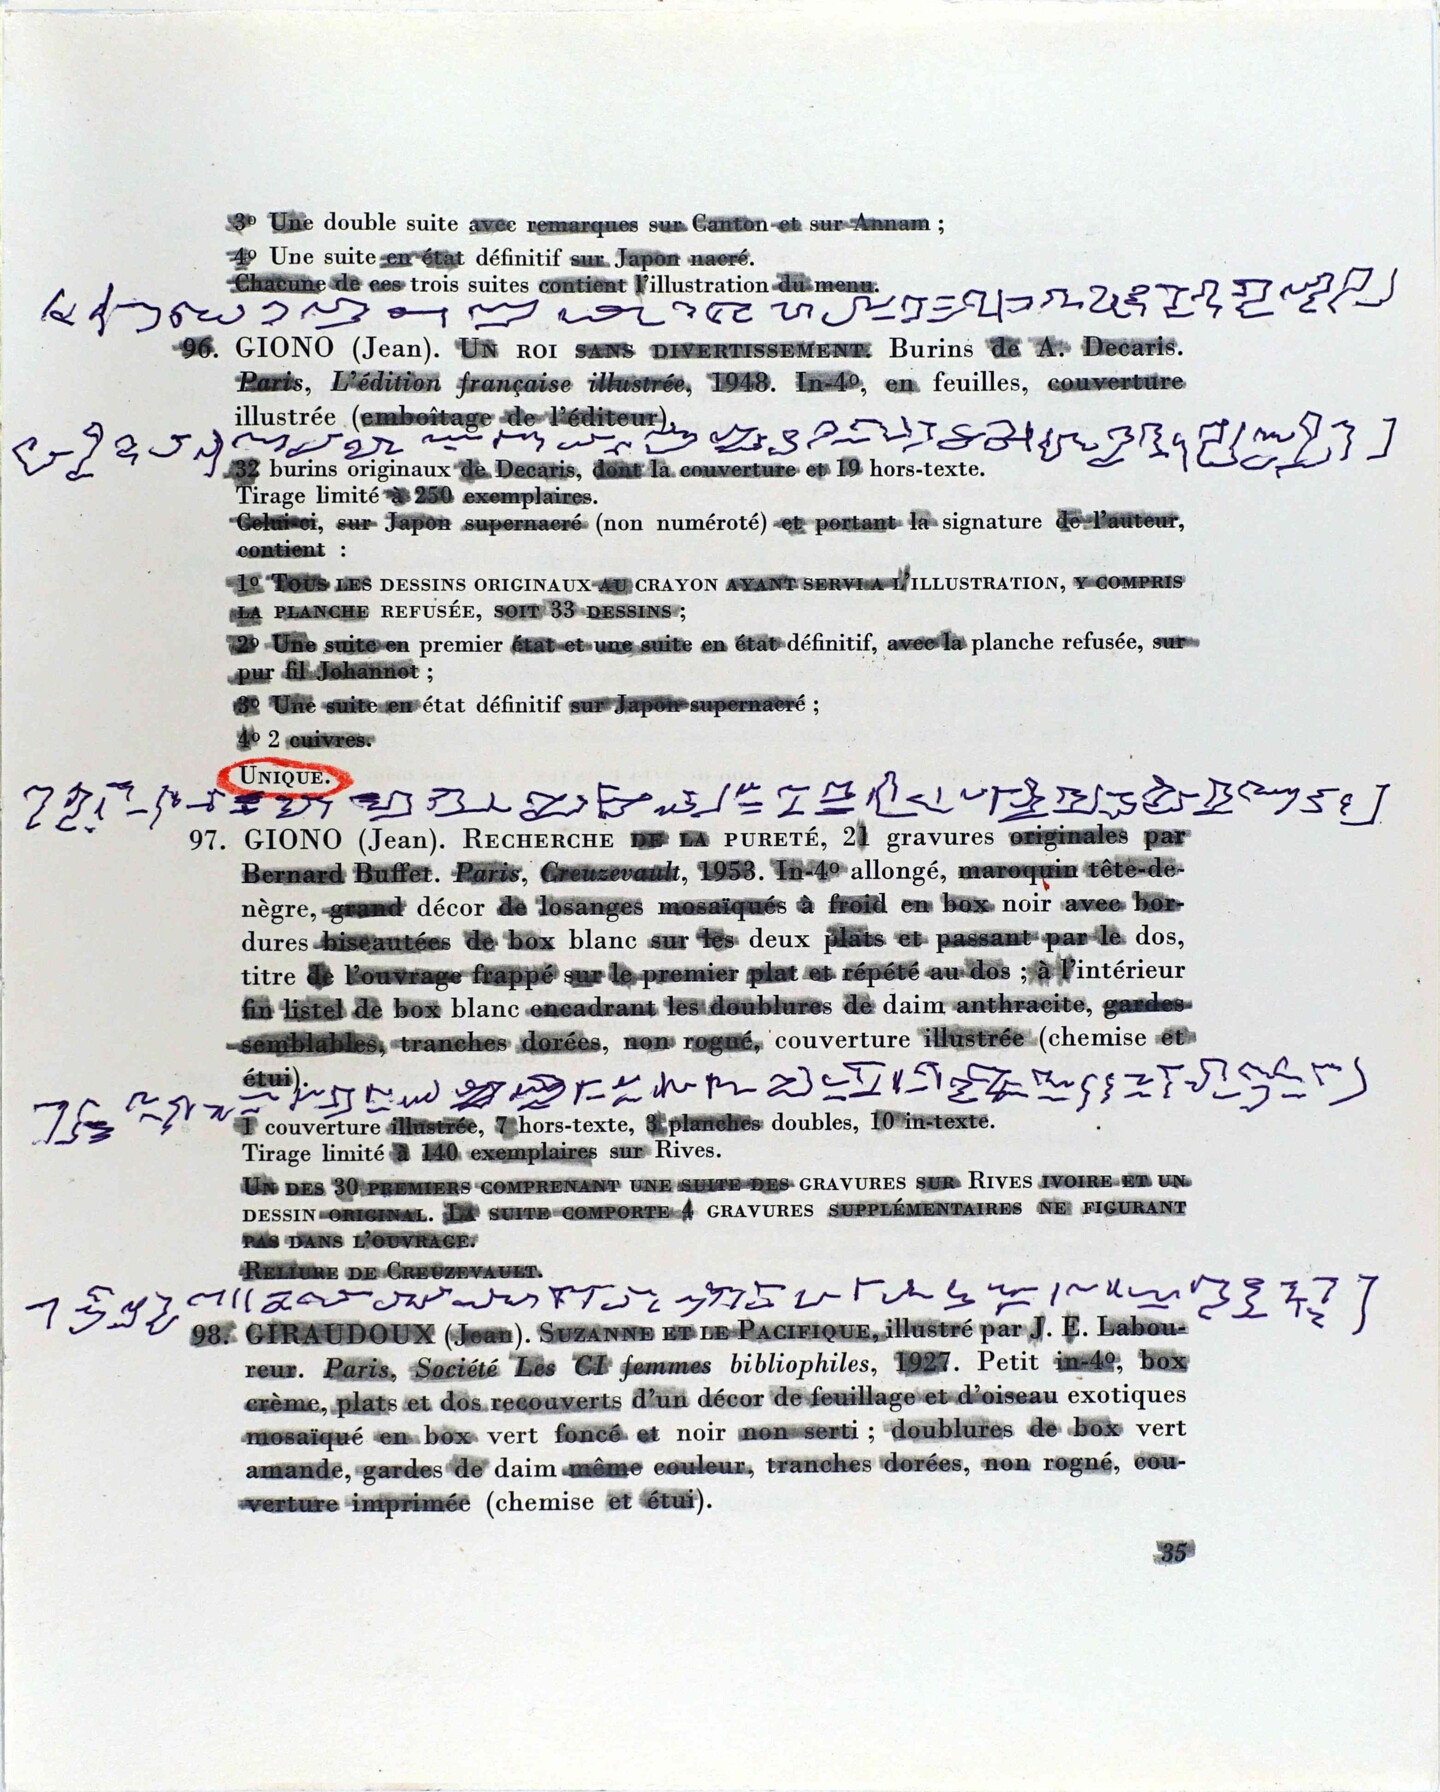 3º Une double suite avec remarques sur Canton et sur Annam ;
4º Une suite en état définitif sur Japon nacré.
Chacune de ces trois suites contient l'illustration du menu.
96. GIONO (Jean). UN ROI SANS DIVERTISSEMENT. Burins de A. Decaris.
Paris, L'édition française illustrée, 1948. In-4º, en feuilles, couverture
illustrée (emboîtage de l'éditeur).
32 burins originaux de Decaris, dont la couverture et 19 hors-texte.
Tirage limité à 250 exemplaires.
Celui-ci, sur Japon supernacré (non numéroté) et portant la signature de l'auteur,
contient :
1º TOUS LES DESSINS ORIGINAUX AU CRAYON AYANT SERVI A L'ILLUSTRATION, Y COMPRIS
LA PLANCHE REFUSÉE, SOIT 33 DESSINS ;
2º Une suite en premier état et une suite en état définitif, avec la planche refusée, sur
pur fil Johannot ;
3º Une suite en état définitif sur Japon supernacré ;
4º 2 cuivres.
UNIQUE.
97. GIONO (Jean). RECHERCHE DE LA PURETÉ, 21 gravures originales par
Bernard Buffet. Paris, Creuzevault, 1953. In-4º allongé, maroquin tête-de-
nègre, grand décor de losanges mosaïqués à froid en box noir avec bor-
dures biseautées de box blanc sur les deux plats et passant par le dos,
titre de l'ouvrage frappé sur le premier plat et répété au dos ; à l'intérieur
fin listel de box blanc encadrant les doublures de daim anthracite, gardes
semblables, tranches dorées, non rogné, couverture illustrée (chemise et
étui).
1 couverture illustrée, 7 hors-texte, 3 planches doubles, 10 in-texte.
Tirage limité à 140 exemplaires sur Rives.
UN DES 30 PREMIERS COMPRENANT UNE SUITE DES GRAVURES SUR RIVES IVOIRE ET UN
DESSIN ORIGINAL. LA SUITE COMPORTE 4 GRAVURES SUPPLÉMENTAIRES NE FIGURANT
PAS DANS L'OUVRAGE.
RELIURE DE CREUZEVAULT.
98. GIRAUDOUX (Jean). SUZANNE ET LE PACIFIQUE, illustré par J. E. Labou-
reur. Paris, Société Les CI femmes bibliophiles, 1927. Petit in-4º, box
crème, plats et dos recouverts d'un décor de feuillage et d'oiseau exotiques
mosaïqué en box vert foncé et noir non serti ; doublures de box vert
amande, gardes de daim même couleur, tranches dorées, non rogné, cou-
verture imprimée (chemise et étui).
35